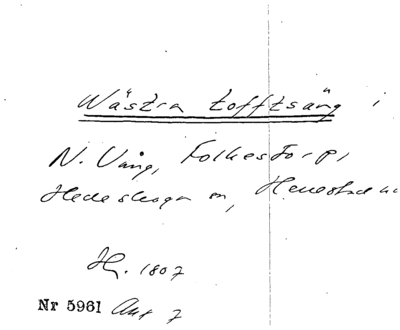 Wästra tofftsäng i
N. Vång, Folkestorp,
Hedeskoga sn, Herrestad
H. 1807
Nr 5961 Akt 7